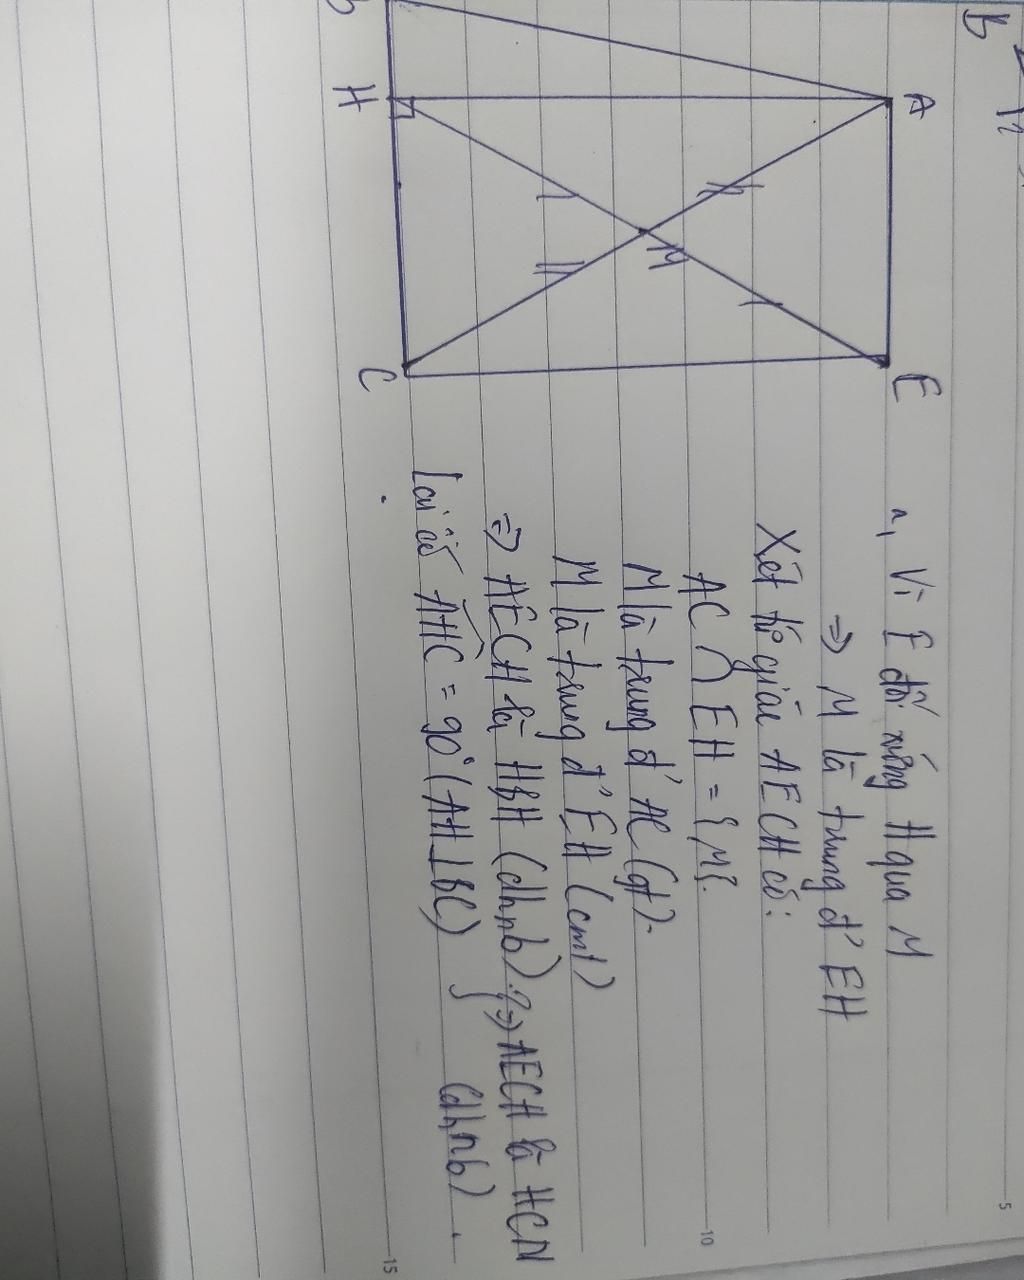 B
A
E
M
H
C
a, Vì E đối xứng H qua M
=> M là trung đ' EH
Xét tứ giác AECH có:
AC ∩ EH = {M}.
M là trung đ' AC (gt).
M là trung đ' EH (cmt)
=> AECH là HBH (dhnb). } => AECH là HCN
Lại có AHC = 90° (AH ⊥ BC) (dhnb).
5
10
15